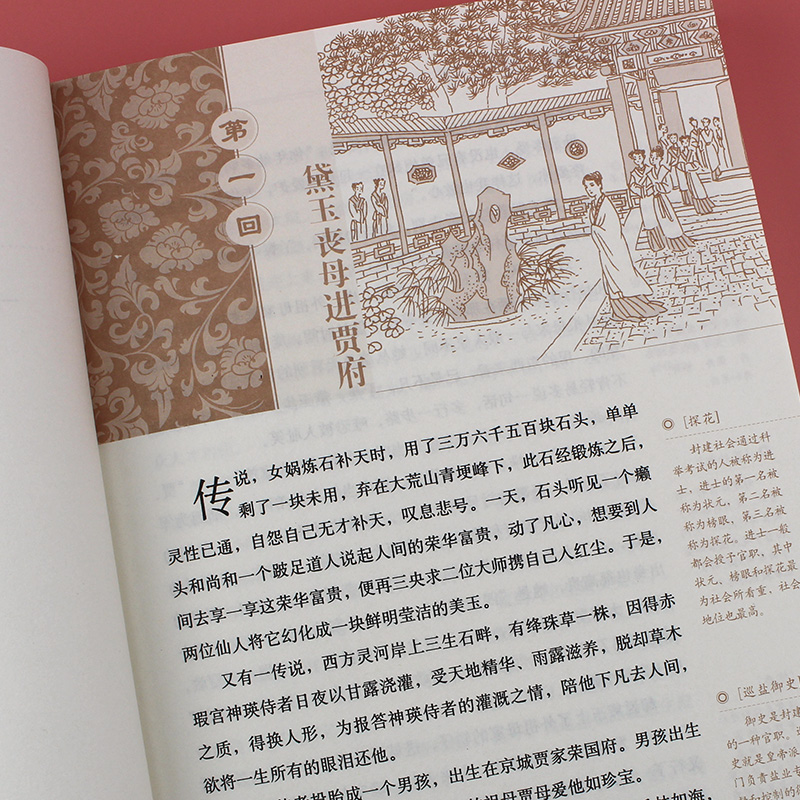 第一回
黛玉丧母进贾府
传说，女娲炼石补天时，用了三万六千五百块石头，单单
剩了一块未用，弃在大荒山青埂峰下，此石经锻炼之后，
灵性已通，自怨自己无才补天，叹息悲号。一天，石头听见一个癞
头和尚和一个跛足道人说起人间的荣华富贵，动了凡心，想要到人
间去享一享这荣华富贵，便再三央求二位大师携自己人红尘。于是，
两位仙人将它幻化成一块鲜明莹洁的美玉。
又有一传说，西方灵河岸上三生石畔，有绛珠草一株，因得赤
瑕宫神瑛侍者日夜以甘露浇灌，受天地精华、雨露滋养，脱却草木
之质，得换人形，为报答神瑛侍者的灌溉之情，陪他下凡去人间，
欲将一生所有的眼泪还他。
者投胎成一个男孩，出生在京城贾家荣国府。男孩出生
祖母贾母爱他如珍宝。
[探花]
封建社会通过科
举考试的人被称为进
士，进士的第一名被
称为状元，第二名被
称为榜眼，第三名被
称为探花。进士一般
都会授予官职，其中
状元、榜眼和探花最
为社会所看重，社会
地位也最高。
[巡盐御史
御史是封建
的一种官职。
史就是皇帝派
门负责盐业专